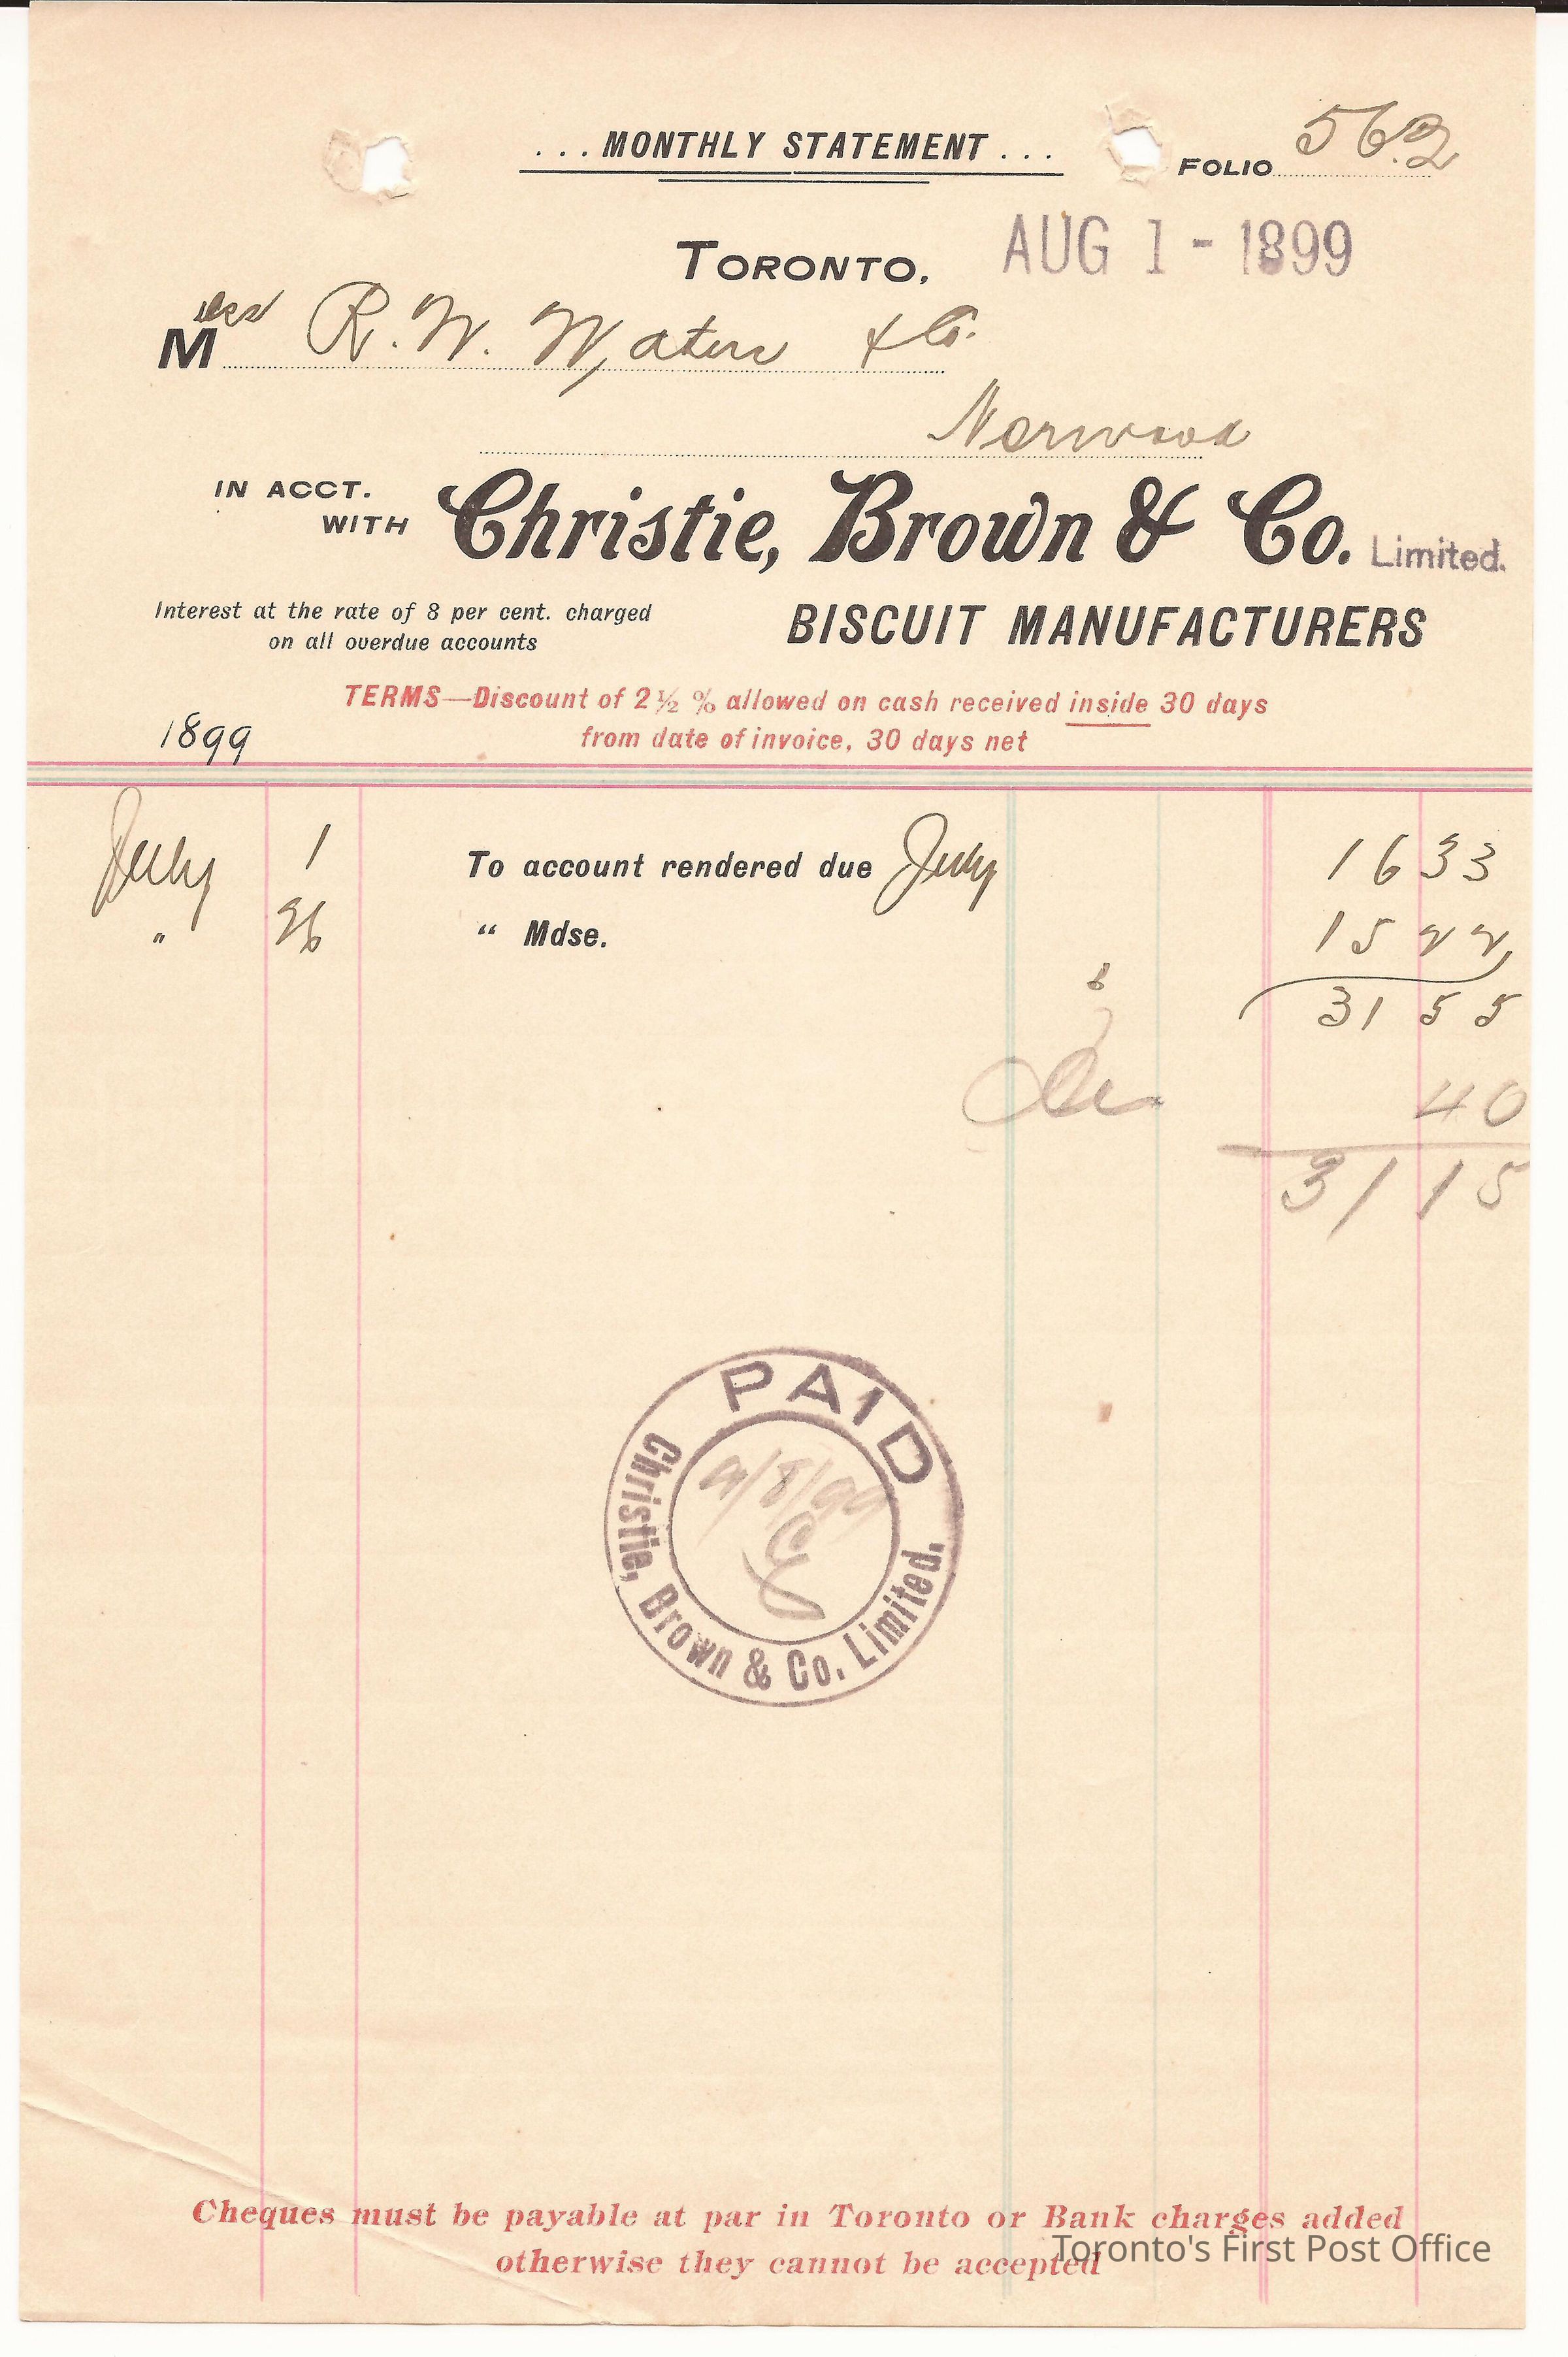 ... MONTHLY STATEMENT ...
FOLIO 562
TORONTO, AUG 1 - 1899
Mess R. W. Waters & Co.
Norwood
IN ACCT. WITH Christie, Brown & Co. Limited.
Interest at the rate of 8 per cent. charged
on all overdue accounts
BISCUIT MANUFACTURERS
TERMS—Discount of 2½ % allowed on cash received inside 30 days
from date of invoice, 30 days net
1899
July 1 To account rendered due July 16 33
" 26 “ Mdse. 15 22
31 55
40
31 15
PAID
/8/99
Christie, Brown & Co. Limited.
Cheques must be payable at par in Toronto or Bank charges added
otherwise they cannot be accepted
Toronto's First Post Office